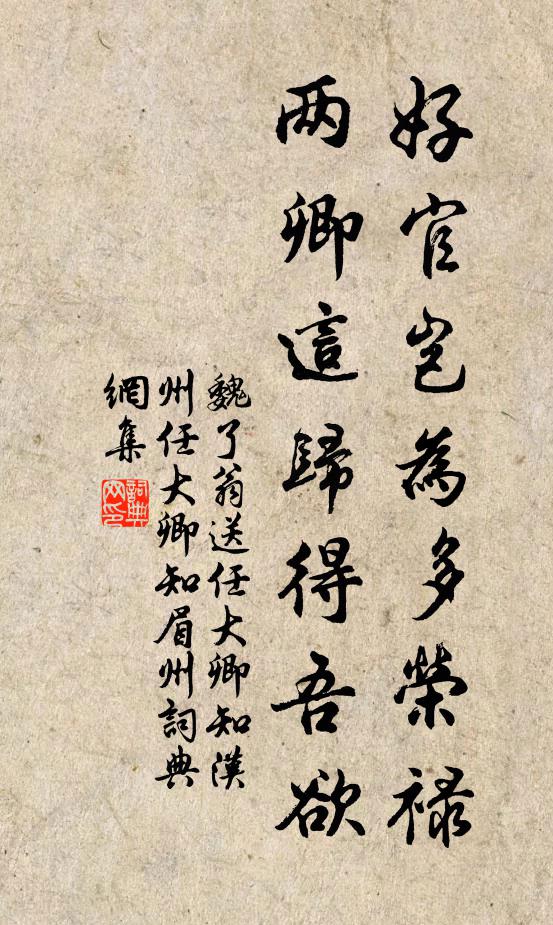 好官岂為多榮祿
两卿這歸得吾欲
魏了翁送任大卿知漢
州任大卿知眉州詞典
網集
詞典
网印